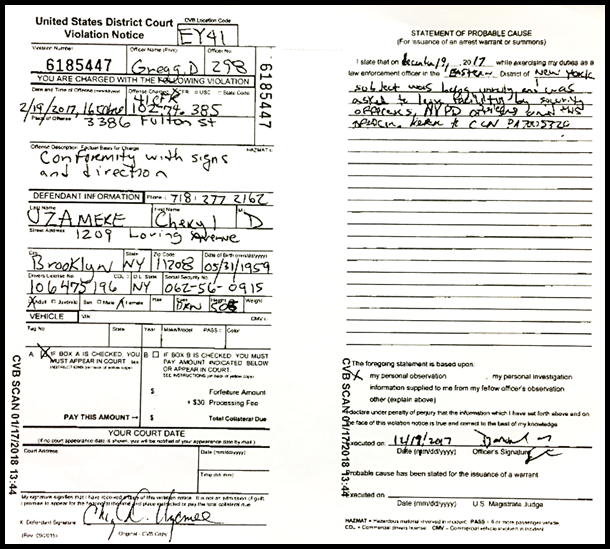 United States District Court
Violation Notice
CVB Location Code
EY41
Violation Number
Officer Name (Print)
Officer No.
6185447
Gregg, D
298
6185447
YOU ARE CHARGED WITH THE FOLLOWING VIOLATION
Date and Time of Offense (mm/dd/yyyy)
Offense Charged
CFR
USC
State Code
41CFR
102-74.385
Place of Offense
3386 Fulton St
Offense Description: Factual Basis for Charge
HAZMAT
Conformity with signs
and direction
DEFENDANT INFORMATION
Phone:
718 277 2162
Last Name
First Name
M.I.
UZAMERE
Cheryl
D
Street Address
1209 Loring Avenue
City
State
Zip Code
Date of Birth (mm/dd/yyyy)
Brooklyn
NY
11208
05/31/1959
Drivers License No.
CDL
D.L. State
Social Security No.
106475196
NY
062-56-0915
Adult
Juvenile
Sex
Male
Female
Hair
Eyes
Height
Weight
BRN
VEHICLE
VIN
CMV
Tag No
State
Year
Make/Model
PASS
Color
A
X
IF BOX A IS CHECKED, YOU
MUST APPEAR IN COURT
B
IF BOX B IS CHECKED, YOU MUST
PAY AMOUNT INDICATED BELOW
OR APPEAR IN COURT.
$
Forfeiture Amount
+ $30 Processing Fee
PAY THIS AMOUNT →
$
Total Collateral Due
YOUR COURT DATE
(If no court appearance date is shown, you will be notified of your appearance date by mail.)
Court Address
Date (mm/dd/yyyy)
Time (hh:mm)
X Defendant Signature
Original - CVB Copy
CVB SCAN 01/17/2018 13:44
STATEMENT OF PROBABLE CAUSE
(For issuance of an arrest warrant or summons)
I state that on December 19, 2017 while exercising my duties as a
law enforcement officer in the Eastern District of New York
subject was being unruly and was
asked to leave facility by security
officers, NYPD
The foregoing statement is based upon:
X my personal observation
my personal investigation
information supplied to me from my fellow officer's observation
other (explain above)
I declare under penalty of perjury that the information which I have set forth above and on
the face of this violation notice is true and correct to the best of my knowledge
Executed on
12/19/2017
Date (mm/dd/yyyy)
Officer's Signature
Probable cause has been stated for the issuance of a warrant
Executed on
Date (mm/dd/yyyy)
U.S. Magistrate Judge
HAZMAT = Hazardous material involved in incident; PASS = 9 or more passenger vehicle;
CDL = Commercial drivers license; CMV = Commercial vehicle involved in incident
CVB SCAN 01/17/2018 13:44